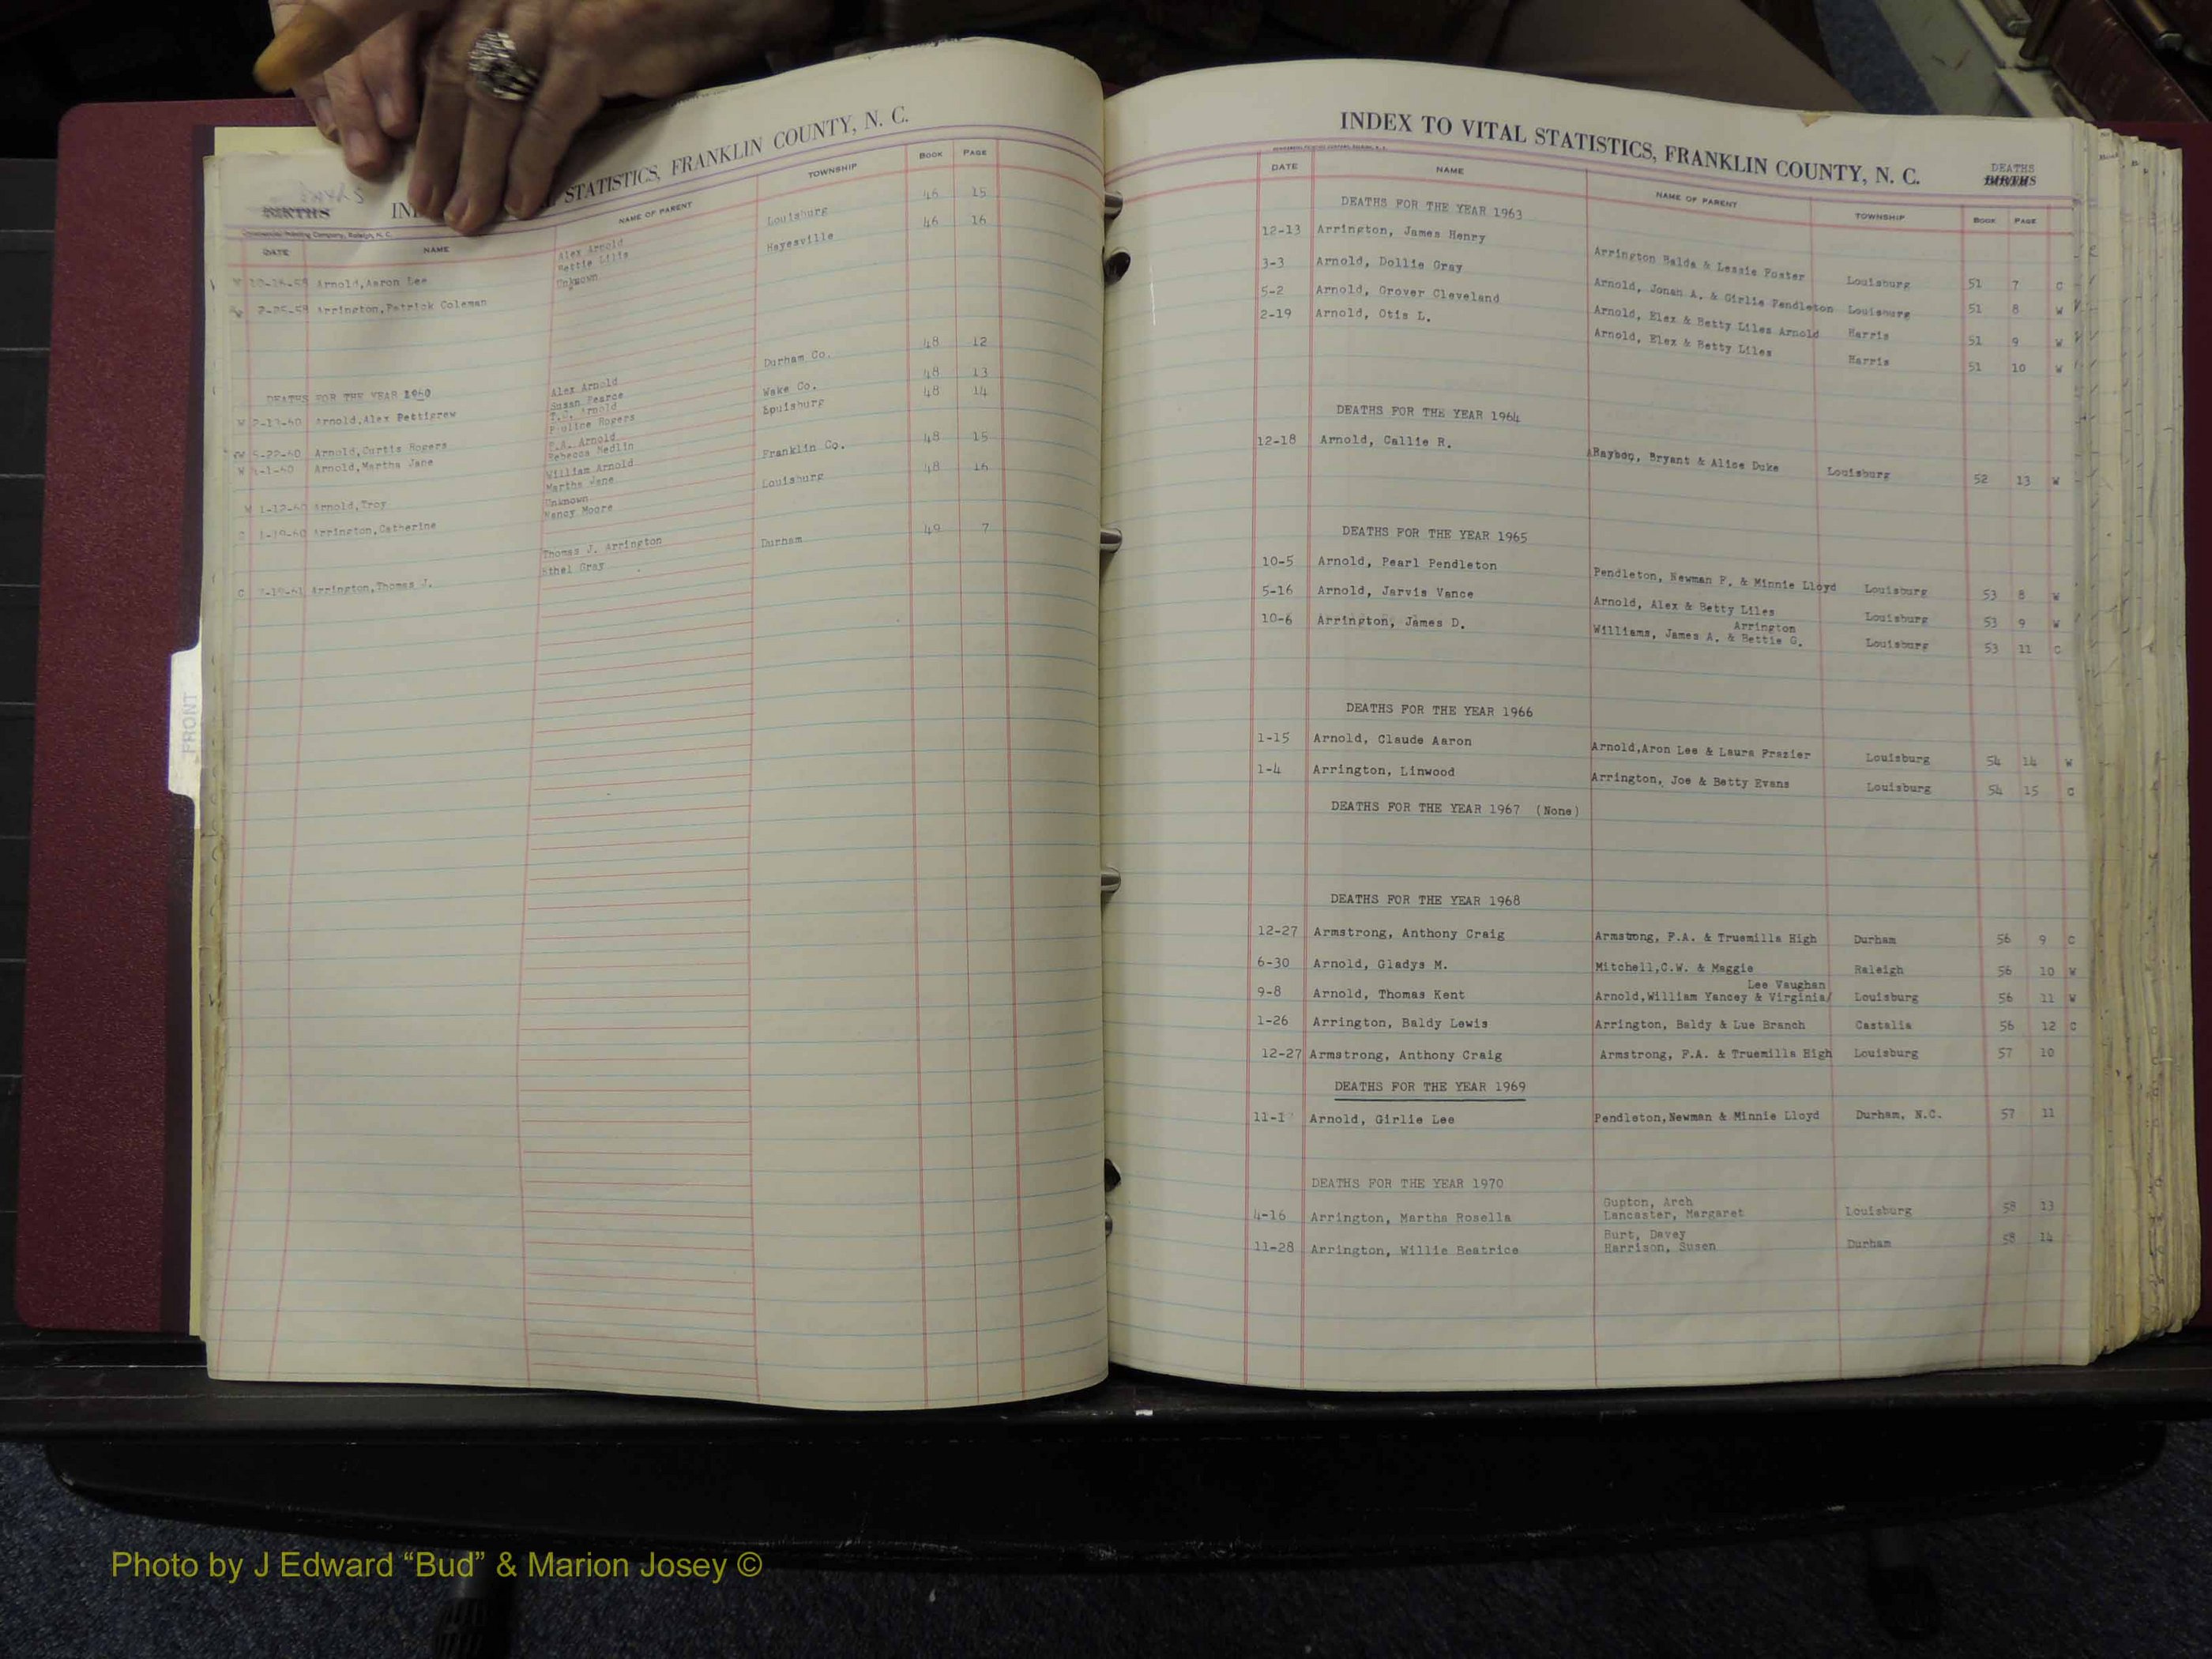 STATISTICS, FRANKLIN COUNTY, N. C.
BIRTHS
DATE NAME NAME OF PARENT TOWNSHIP BOOK PAGE
Alex Arnold Louisburg 46 15
Bettie Lilis
Arnold,Aaron Lee
Unknown Hayesville 46 16
Arrington,Patrick Coleman
DEATHS FOR THE YEAR 1960
Alex Arnold Durham Co. 48 12
Susan Pearce
W 2-13-60 Arnold,Alex Pettigrew
T.C. Arnold Wake Co. 48 13
Pauline Rogers
W 5-22-60 Arnold,Curtis Rogers
Arnold Louisburg 48 14
Rebecca Medlin
W Arnold,Martha Jane
William Arnold Franklin Co. 48 15
Martha Jane
W 1-12-60 Arnold,Troy
Unknown Louisburg 48 16
Nancy Moore
Arrington,Catherine
Thomas J. Arrington Durham 49 7
Ethel Gray
C Arrington,Thomas J.
FRONT
INDEX TO VITAL STATISTICS, FRANKLIN COUNTY, N. C.
DEATHS
BIRTHS
DATE NAME NAME OF PARENT TOWNSHIP BOOK PAGE
DEATHS FOR THE YEAR 1963
12-13 Arrington, James Henry Arrington Balda & Lessie Foster Louisburg 51 7 C
3-3 Arnold, Dollie Gray Arnold, Jonah A. & Girlie Pendleton Louisburg 51 8 W
5-2 Arnold, Grover Cleveland Arnold, Elex & Betty Liles Arnold Harris 51 9 W
2-19 Arnold, Otis L. Arnold, Elex & Betty Liles Harris 51 10 W
DEATHS FOR THE YEAR 1964
12-18 Arnold, Callie R. Bryant & Alice Duke Louisburg 52 13 W
DEATHS FOR THE YEAR 1965
10-5 Arnold, Pearl Pendleton Pendleton, Newman F. & Minnie Lloyd Louisburg 53 8 W
5-16 Arnold, Jarvis Vance Arnold, Alex & Betty Liles Louisburg 53 9 W
Arrington
10-6 Arrington, James D. Williams, James A. & Bettie G. Louisburg 53 11 C
DEATHS FOR THE YEAR 1966
1-15 Arnold, Claude Aaron Arnold,Aron Lee & Laura Frazier Louisburg 54 14 W
1-4 Arrington, Linwood Arrington, Joe & Betty Evans Louisburg 54 15 C
DEATHS FOR THE YEAR 1967 (None)
DEATHS FOR THE YEAR 1968
12-27 Armstrong, Anthony Craig Armstrong, F.A. & Truemilla High Durham 56 9 C
6-30 Arnold, Gladys M. Mitchell,C.W. & Maggie Raleigh 56 10 W
Lee Vaughan
9-8 Arnold, Thomas Kent Arnold,William Yancey & Virginia/ Louisburg 56 11 W
1-26 Arrington, Baldy Lewis Arrington, Baldy & Lue Branch Castalia 56 12 C
12-27 Armstrong, Anthony Craig Armstrong, F.A. & Truemilla High Louisburg 57 10
DEATHS FOR THE YEAR 1969
Arnold, Girlie Lee Pendleton,Newman & Minnie Lloyd Durham, N.C. 57 11
DEATHS FOR THE YEAR 1970
Gupton, Arch
4-16 Arrington, Martha Rosella Lancaster, Margaret Louisburg 58 13
Burt, Davey
11-28 Arrington, Willie Beatrice Harrison, Susen Durham 58 14
Photo by J Edward “Bud” & Marion Josey ©